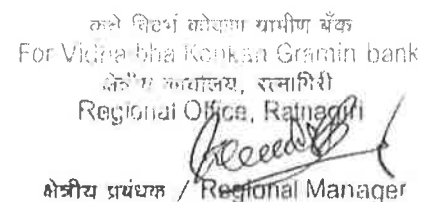 कृते विदर्भ कोंकण ग्रामीण बैंक
For Vidharbha Konkan Gramin bank
क्षेत्रीय कार्यालय, रत्नागिरी
Regional Office, Ratnagiri
क्षेत्रीय प्रबंधक / Regional Manager